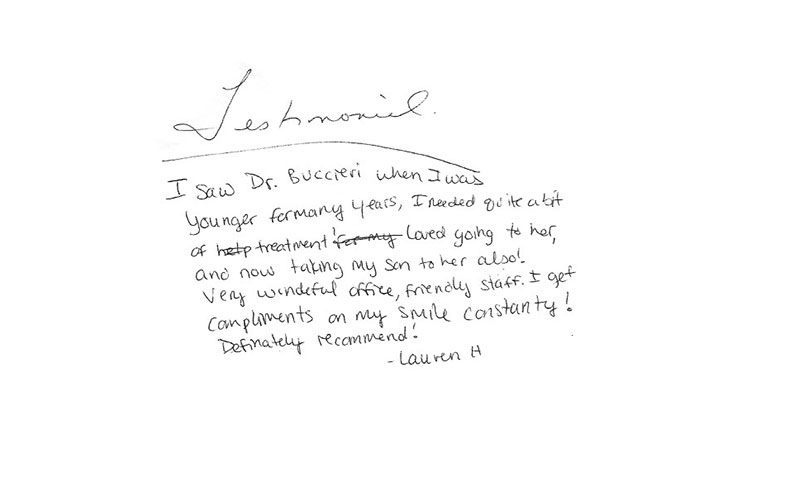 Testimonial.
I saw Dr. Buccieri when I was
younger for many years, I needed quite a bit
of help treatment! for my Loved going to her,
and now taking my son to her also!
Very wondeful office, friendly staff. I get
compliments on my smile constanty!
Definately recommend!
- Lauren H